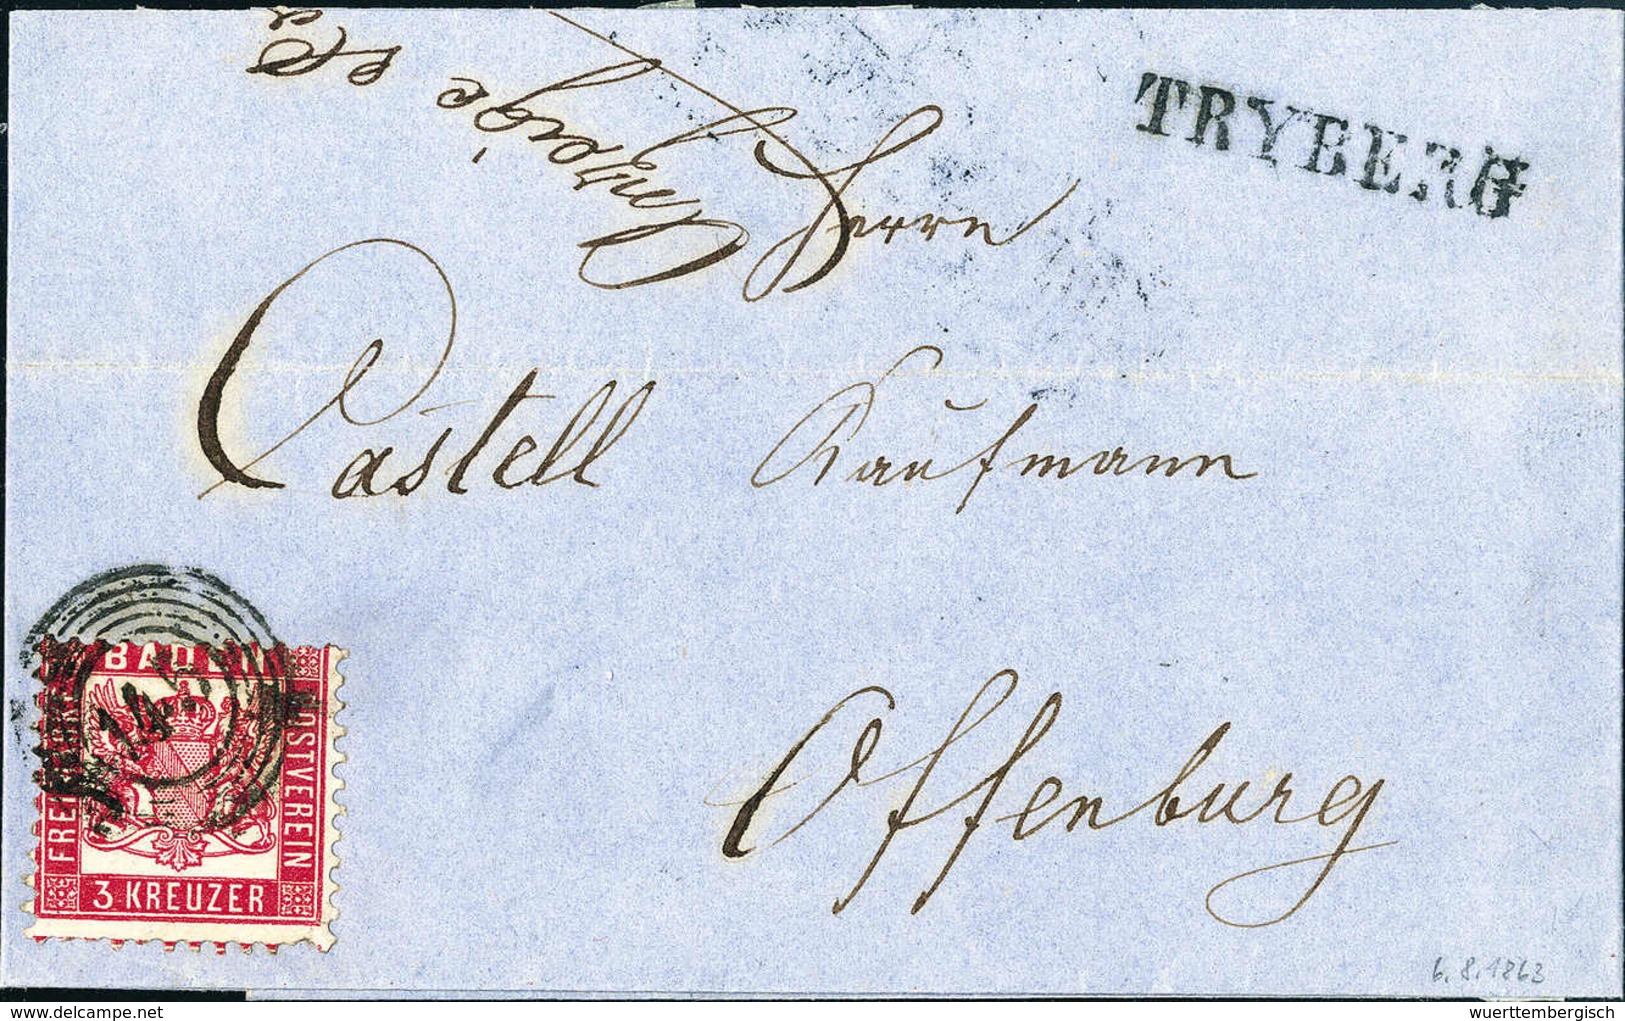 TRYBERG
Herrn
Castell Kaufmann
Offenburg
145
BADEN
FREI
POSTVEREIN
3 KREUZER
6.8.1863
wuerttembergisch